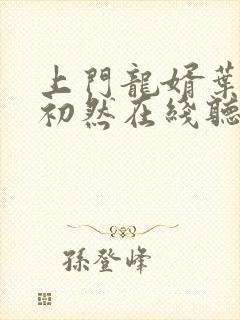 上門龍婿葉
初然在綫聽
孫登峰